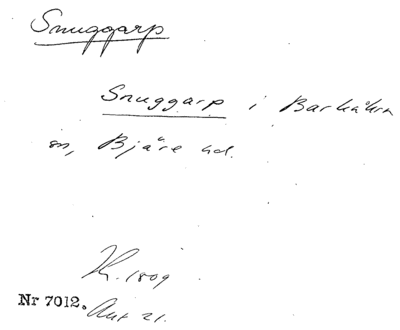 Snuggarp
Snuggarp i Barkåkra
sn, Bjäre hd.
1809
Nr 7012. Aut 21.